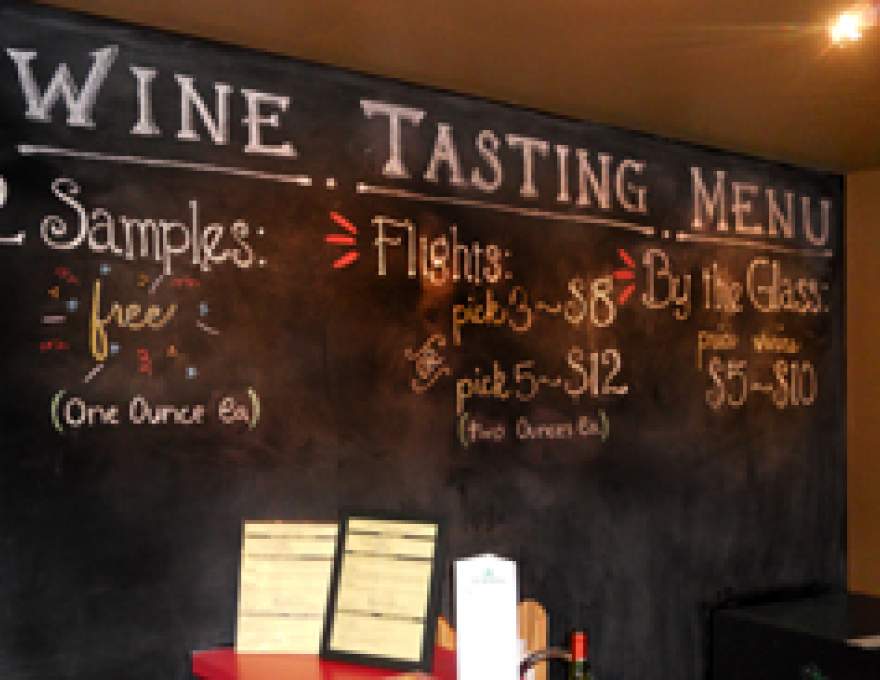 WINE TASTING MENU
2 Samples:
free
(One Ounce Ea)
Flights:
pick 3 ~ $8
pick 5 ~ $12
(two Ounces Ea)
By the Glass:
$5 ~ $10